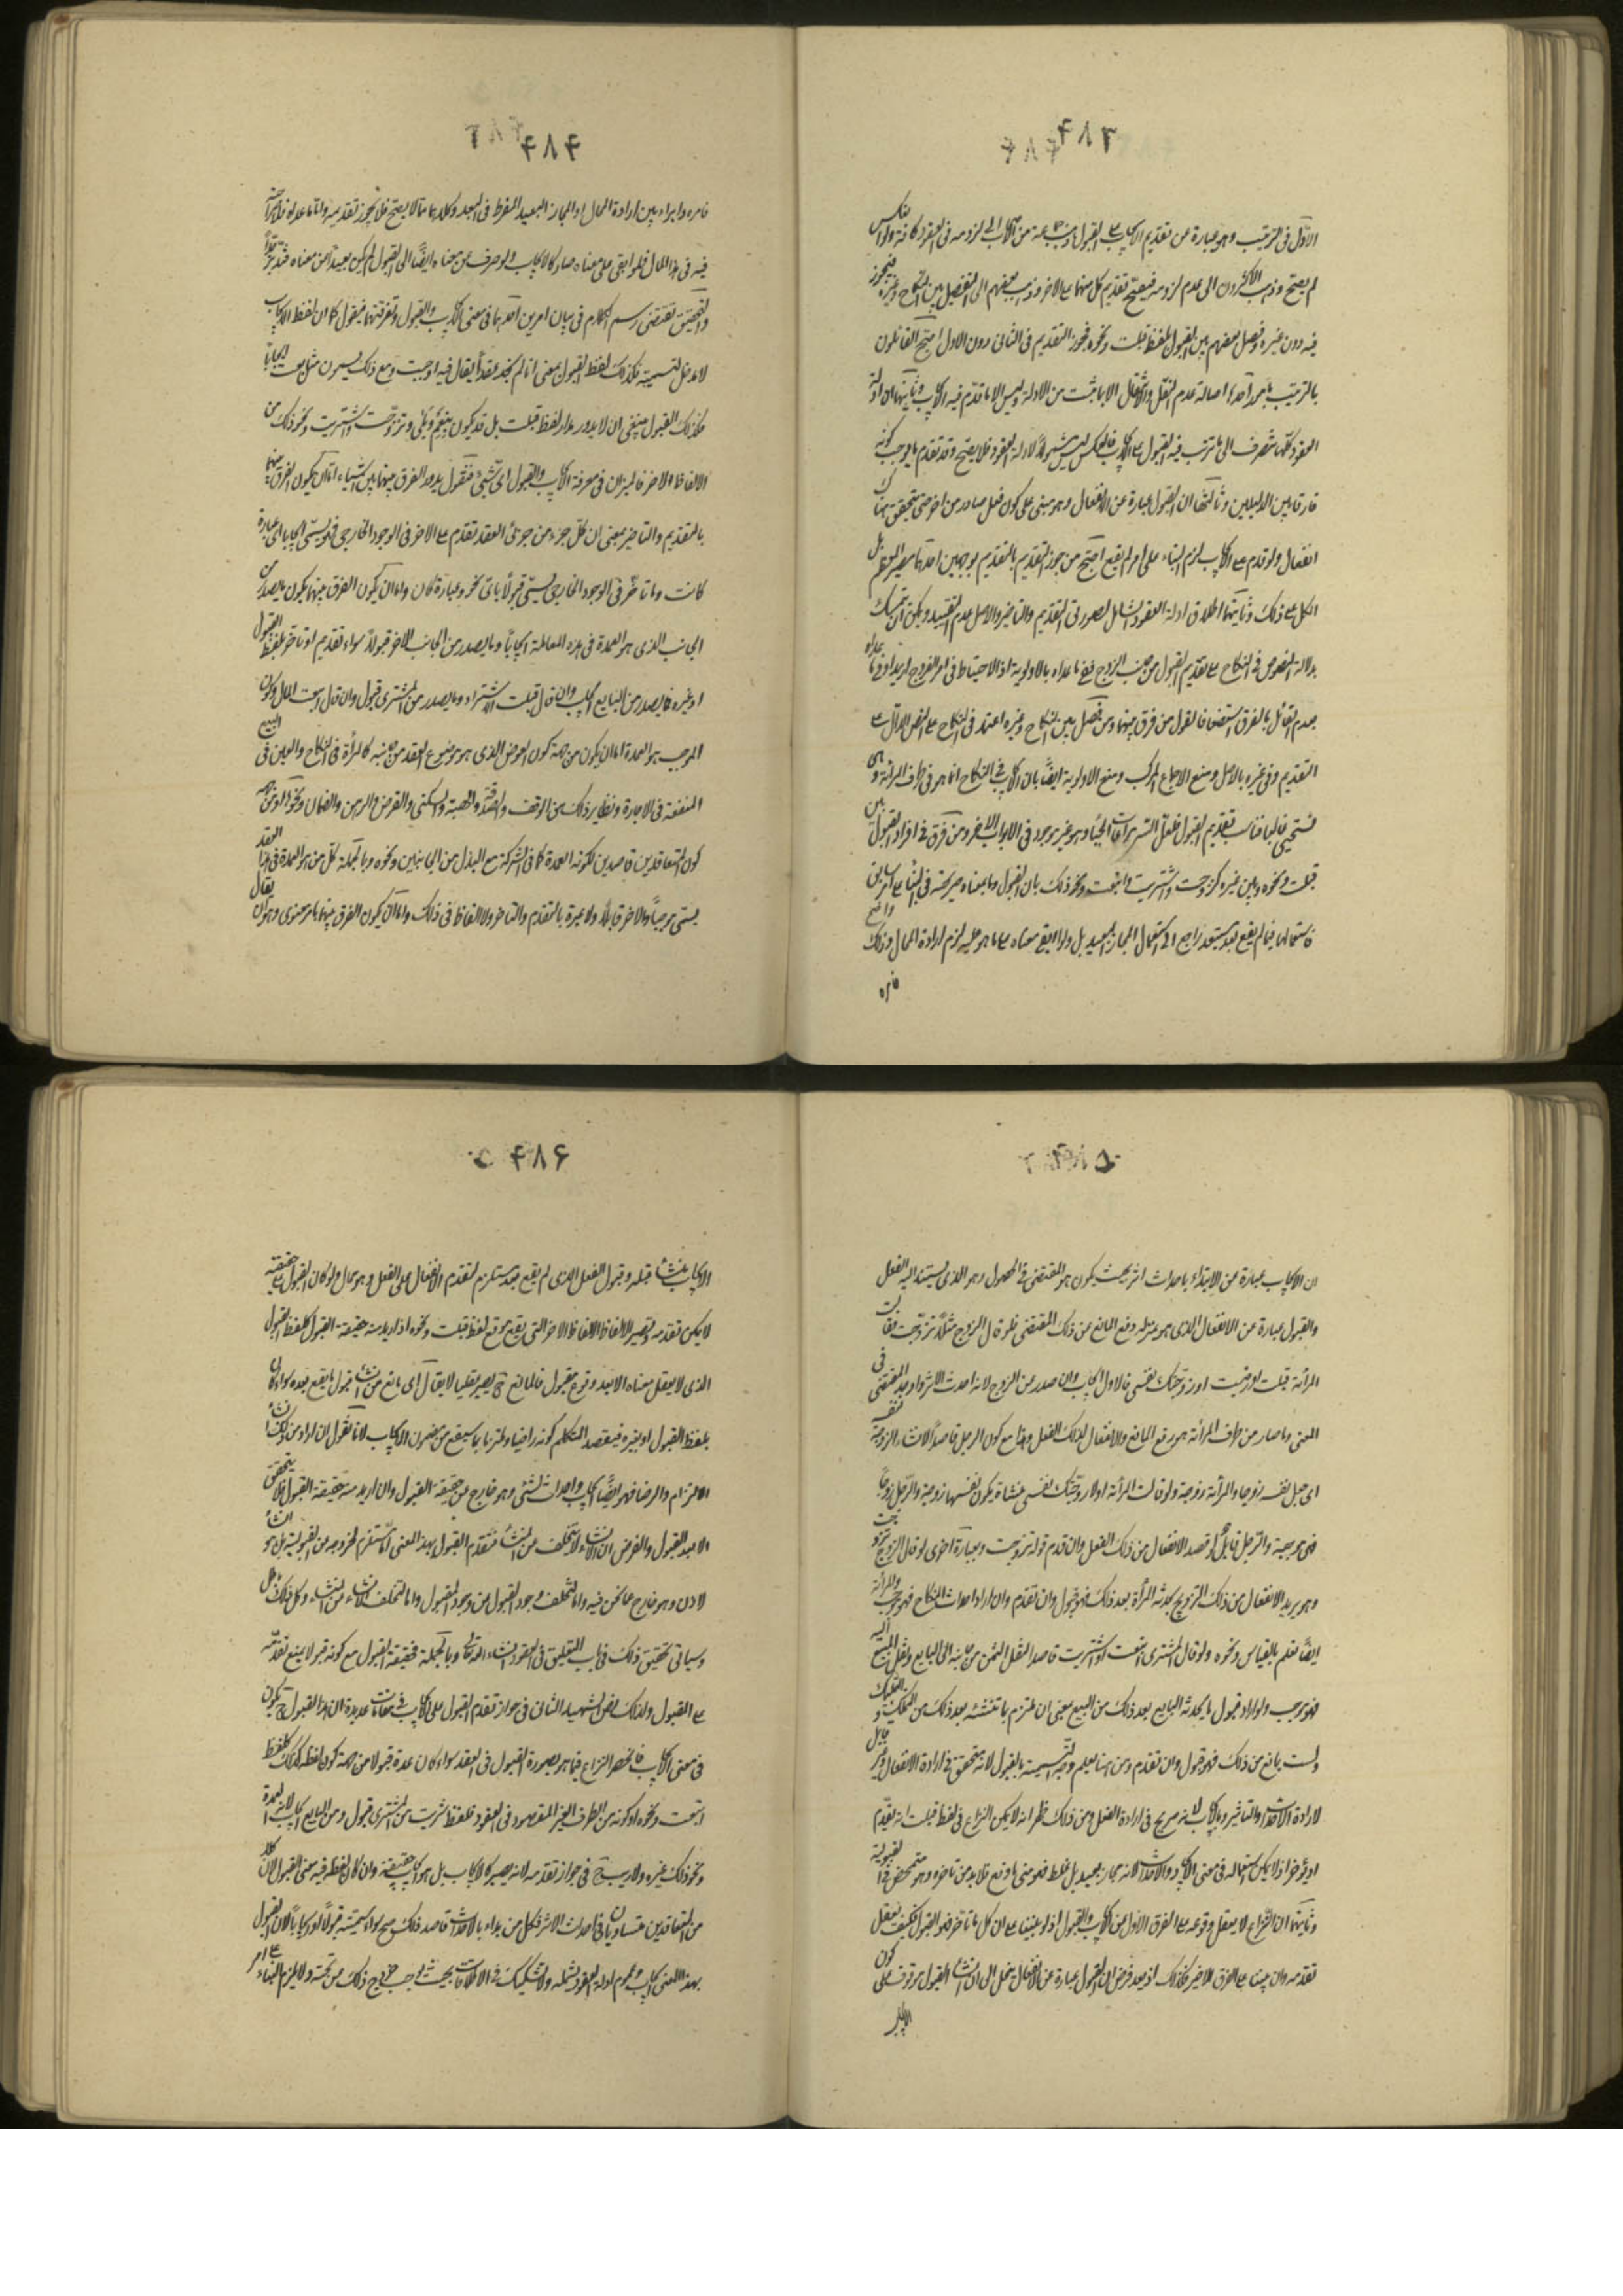 ۴۸۳
الاوّل فى الترتيب وهو عبارة عن تقديم الايجاب على القبول وذهب جماعة من الى لزومه فى العقود كافة ولو انعكس
لم يصحّ وذهب الاكثرون الى عدم لزومه فيصحّ تقديم كل منهما على الاخر وذهب بعضهم الى التفصيل بين النكاح وغيره فيجوز
فيه دون غيره وفصل بعضهم بين القبول بلفظ قبلت ونحوه فجوز التقديم فى الثانى دون الاول احتج القائلون
بالترتيب بامور احدها اصالة عدم النقل والانتقال الا بما ثبت من الادلة وليس الا ما تقدّم فيه الايجاب وثانيها ان ادلة
العقود كلّها تنصرف الى ما ترتب فيه القبول على الايجاب فالعكس ليس مشمولًا لادلة العقود فلا يصحّ وقد تقدم ما يوجب كونه
فارقا بين الدليلين وثالثها ان القبول عبارة عن الانفعال وهو مبنى على كون فعل صادر من اخر حتى يتحقق هناك
انفعال ولو قدم على الايجاب لزم البناء على امر لم يقع احتج من جوز التقديم بالتقديم بوجهين احدهما مصير المعظم بل
الكل على ذلك وثانيهما اطلاق ادلة العقود الشامل لصورتى التقديم والتاخير والاصل عدم التقييد ويمكن ان يتمسك
بدلالة النصوص فى النكاح على تقديم القبول من جانب الزوج ففى ما عداه بالاولوية اذ الاحتياط فى امر الفروج ازيد او فى ما عداه
بعدم القائل بالفرق استضعافا لقول من فرق بينهما ومن فصل بين النكاح وغيره اعتمد فى النكاح على النص الدالّ على
التقديم وفى غيره بالاصل ومنع الاجماع المركب ومنع الاولوية ايضًا بان الايجاب فى النكاح انما هو فى طرف المرأة وهى
تستحيى غالبا فناسب تقديم القبول فلعلّ السّر مراعات الحياء وهو غير موجود فى الابواب الاخر ومن فرّق فى افراد القبول بين
قبلت ونحوه وبين غيره كزوجت واشتريت وابتعت ونحو ذلك بان القبول وما بمعناه صريحة فى البناء على امر سابق
فاستعمالها فيما لم يقع بعد مستبعد راجع الى استعمال المجاز البعيد بل ولو ابقى معناه على ما هو عليه لزم ارادة المحال وذلك واضح
فامره
۴۸۴
فامره دائر بين ارادة المحال او المجاز البعيد المفرط فى البعد وكلاهما مما لا يصحّ فلا يجوز تقديمه وامّا ما عداه فلا صراحة
فيه فى هذا المحال فلو ابقى على معناه صار كالايجاب ولو صرف عن معناه ايضًا الى القبول لم يكن بعيدًا من معناه فتدبّر جدًّا
والتحقيق يقتضى رسم الكلام فى بيان امرين احدهما فى معنى الايجاب والقبول وتفرقتهما فيقول كما ان لفظ الايجاب
لا مدخل لتسميته فكذلك لفظ القبول بمعنى انا لم نجد عقدًا يقال فيه اوجبت ومع ذلك يسمون مثل بعت ايجابًا
فكذلك القبول ينبغى ان لا يدور مدار لفظ قبلت بل قد يكون بنعم وبلى وتزوّجت واشتريت ونحو ذلك من
الالفاظ والاخر فالميزان فى معرفة الايجاب والقبول اىّ شىء فنقول يدور الفرق بينهما بين اشياء امّا ان يكون الفرق بينهما
بالتقديم والتاخير بمعنى ان كلّ جزء من جزئى العقد تقدم على الاخر فى الوجود الخارجى فهو يسمّى ايجابا باى عبارة
كانت وما تاخّر فى الوجود الخارجى يسمّى قبولًا باىّ نحو وعبارة كان واما ان يكون الفرق بينهما يكون ما يصدر من
الجانب الذى هو العمدة فى هذه المعاملة ايجابًا وما يصدر من الجانب الاخر قبولًا سواء تقديم او تاخر بلفظ القبول
او غيره فما يصدر من البايع ايجاب وان قال قبلت الاشتراء وما يصدر من المشترى قبول وان قال بعت المال وكون
الموجب هو العمدة اما ان يكون من جهة كون العوض الذى هو موضوع العقد من جانبه كالمرأة فى النكاح والعين فى البيع
المنفعة فى الاجارة ونظاير ذلك من الوقف والصّدقة والهبة والسكنى والقرض والرهن والضمان ونحوها او من جهة
كون المتعاقدين قاصدين لكونه العمدة كما فى الشركة مع البذل من الجانبين ونحوه وبالجملة كلّ من هو العمدة فى العقد
يسمّى موجبًا والاخر قابلًا ولا عبرة بالتقدم والتاخر ولا الالفاظ فى ذلك واما ان يكون الفرق بينهما بامر معنوى وهو ان يقال
۴۸۵
ان الايجاب عبارة عن الابتداء باحداث اثر بحيث يكون هو المقتضى فى الحصول وهو الذى يستند اليه الفعل
والقبول عبارة عن الانفعال الذى هو بمنزلة رفع المانع من ذلك المقتضى فلو قال الزوج مثلًا تزوّجت فقالت
المرأة قبلت او رضيت او زوّجتك نفسى فالاول ايجاب وان صدر من الزوج لانه احدث الاثر واوجد المقتضى فى
المعنى وما صار من طرف المرأة هو رفع المانع والانفعال لذلك الفعل وهذا مع كون الرجل قاصدًا لانشاء الزوجية
اى جعل نفسه زوجا والمرأة زوجة ولو قالت المرأة اولا زوّجتك نفسى منشأة بكون نفسها زوجة والرّجل زوجًا
فهى موجبة والرّجل قابل او قصد الانفعال من ذلك الفعل وان قدم قوله تزوجت وبعبارة اخرى لو قال الزوج تزوجت
وهو يريد الانفعال من ذلك التزويج يحدثه المرأة بعد ذلك فهو قبول وان تقدم وان اراد احداث النكاح فهو موجب والمرأة
ايضًا تعلم بالقياس ونحوه ولو قال المشترى ابتعت او اشتريت قاصدا لنقل الثمن من جانبه الى البايع ونقل المبيع اليه
فهو موجب ولو اراد قبول ما يحدثه البايع بعد ذلك من البيع بمعنى ان ملتزم بما تنشئه بعد ذلك من التملك والتمليك
ولست بمانع من ذلك فهو قبول وان تقدم ومن هنا يعلم وجه التّسمية بالقبول لانه يتحقق فى ارادة الانفعال وغير قابل
لارادة الاحداث والتاثير وبالايجاب لانه صريح فى ارادة الفعل ومن ذلك ظهر انه لا يمكن النزاع فى لفظ قبلت انه يقدّم
او يؤخر اذ لا يمكن استعماله فى معنى الايجاد والاحداث لانه مجاز بعيد بل غلط فهو متى ما وقع فلا بد من تاخره وهو متمحض فى القبولية
وثانيهما ان النّزاع لا يعقل وقوعه على الفرق الاوّل من الايجاب والقبول اذ لو بنينا على ان كل ما تاخّر فهو القبول فكيف يعقل
تقدمه وان بنينا على الفرق الاخير فكذلك اذ بعد فرض ان القبول عبارة عن الانفعال ينحل الى ان انشاء القبول موقوف على كون
الايجاب
۴۸۶
الايجاب منشأ قبله وقبول الفعل الذى لم يقع بعد مستلزم لتقدم الانفعال على الفعل وهو محال ولو كان القبول على حقيقته
لا يمكن تقدمه وتصير الالفاظ الالفاظ الاخر التى يقع موقع لفظ قبلت ونحوه اذا اريد منه حقيقة القبول كلفظ القبول
الذى لا يعقل معناه الا بعد وقوع مقبول فالمانع ح يصير عقليا لا يقال اى مانع من انشاء قبول ما يقع بعده سواء كان
بلفظ القبول او بغيره فيقصد المتكلم كونه راضيا وملتزما بما سيقع من مضمون الايجاب لانا نقول ان اراد من ذلك انشاء
الالتزام والرضا فهو ايضًا ايجاب واحداث لشئ وهو خارج عن حقيقة القبول وان اريد منه حقيقة القبول فلا يتحقق
الا بعد القبول والفرض ان الانشاء لا يتخلف عن المنشأ فتقدم القبول بهذا المعنى امّا مستلزم لخروجه من القبولية بل هو انشاء
لاذن وهو خارج عما نحن فيه واما لتخلف وجود القبول من وجود المقبول واما لتخلف الانشاء من المنشاء وكل ذلك باطل
وسياتى تحقيق ذلك فى باب التعليق فى العقود انشاء الله تعالى وبالجملة فحقيقة القبول مع كونه قبولا يمنع تقدّمه
على القبول ولذلك نص الشهيد الثانى فى جواز تقدم القبول على الايجاب فى مقامات عديدة ان هذا القبول ح يكون
فى معنى الايجاب فانحصر النزاع فيما هو بصورة القبول فى العقد سواء كان عدة قبولا من جهة كون لفظه كذلك كلفظ
ابتعت ونحوه او كونه من الطرف الغير المقصود فى العقود فلفظ اشتريت من المشترى قبول ومن البايع ايجاب لانه العمدة
ونحو ذلك غيره ولا ريب ح فى جواز تقدمه لانه يصير كالايجاب بل هو ايجاب حقيقة وان كان لفظه فيه معنى القبول لان كلا
من المتعاقدين متساويان فى احداث الاثر فكل من بداء بالاحداث قاصد ذلك صح سواء سمّيته قبولًا او ايجابًا لان القبول
بهذا المعنى ايجاب وعموم ادلة العقود يشمله ولا تشكيك فى الاطلاقات بحيث يوجب خروج ذلك من تحته ولا يلزم البناء على امر